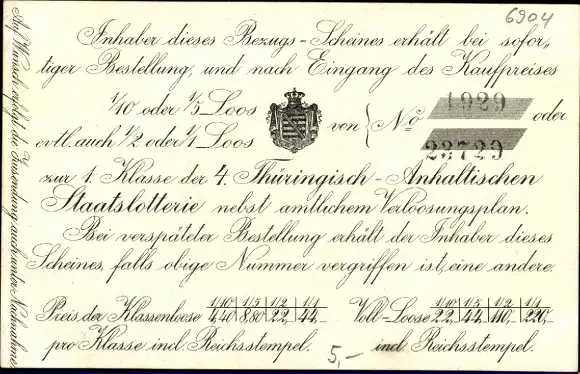 6904
Inhaber dieses Bezugs-Scheines erhält bei sofor-
tiger Bestellung, und nach Eingang des Kaufpreises
1/10 oder 1/5 Loos
evtl. auch 1/2 oder 1/1 Loos
von { No. 1929 oder
23729
zur 1. Klasse der 4. Thüringisch-Anhaltischen
Staatslotterie nebst amtlichem Verloosungsplan.
Bei verspäteter Bestellung erhält der Inhaber dieses
Scheines, falls obige Nummer vergriffen ist, eine andere.
Preis der Klassenloose 1/10 1/5 1/2 1/1
4,40 8,80 22,- 44,-
pro Klasse incl. Reichsstempel.
Voll-Loose 1/10 1/5 1/2 1/1
22,- 44,- 110,- 220,-
incl. Reichsstempel.
5,-
Auf Wunsch erfolgt die Zusendung auch unter Nachnahme.